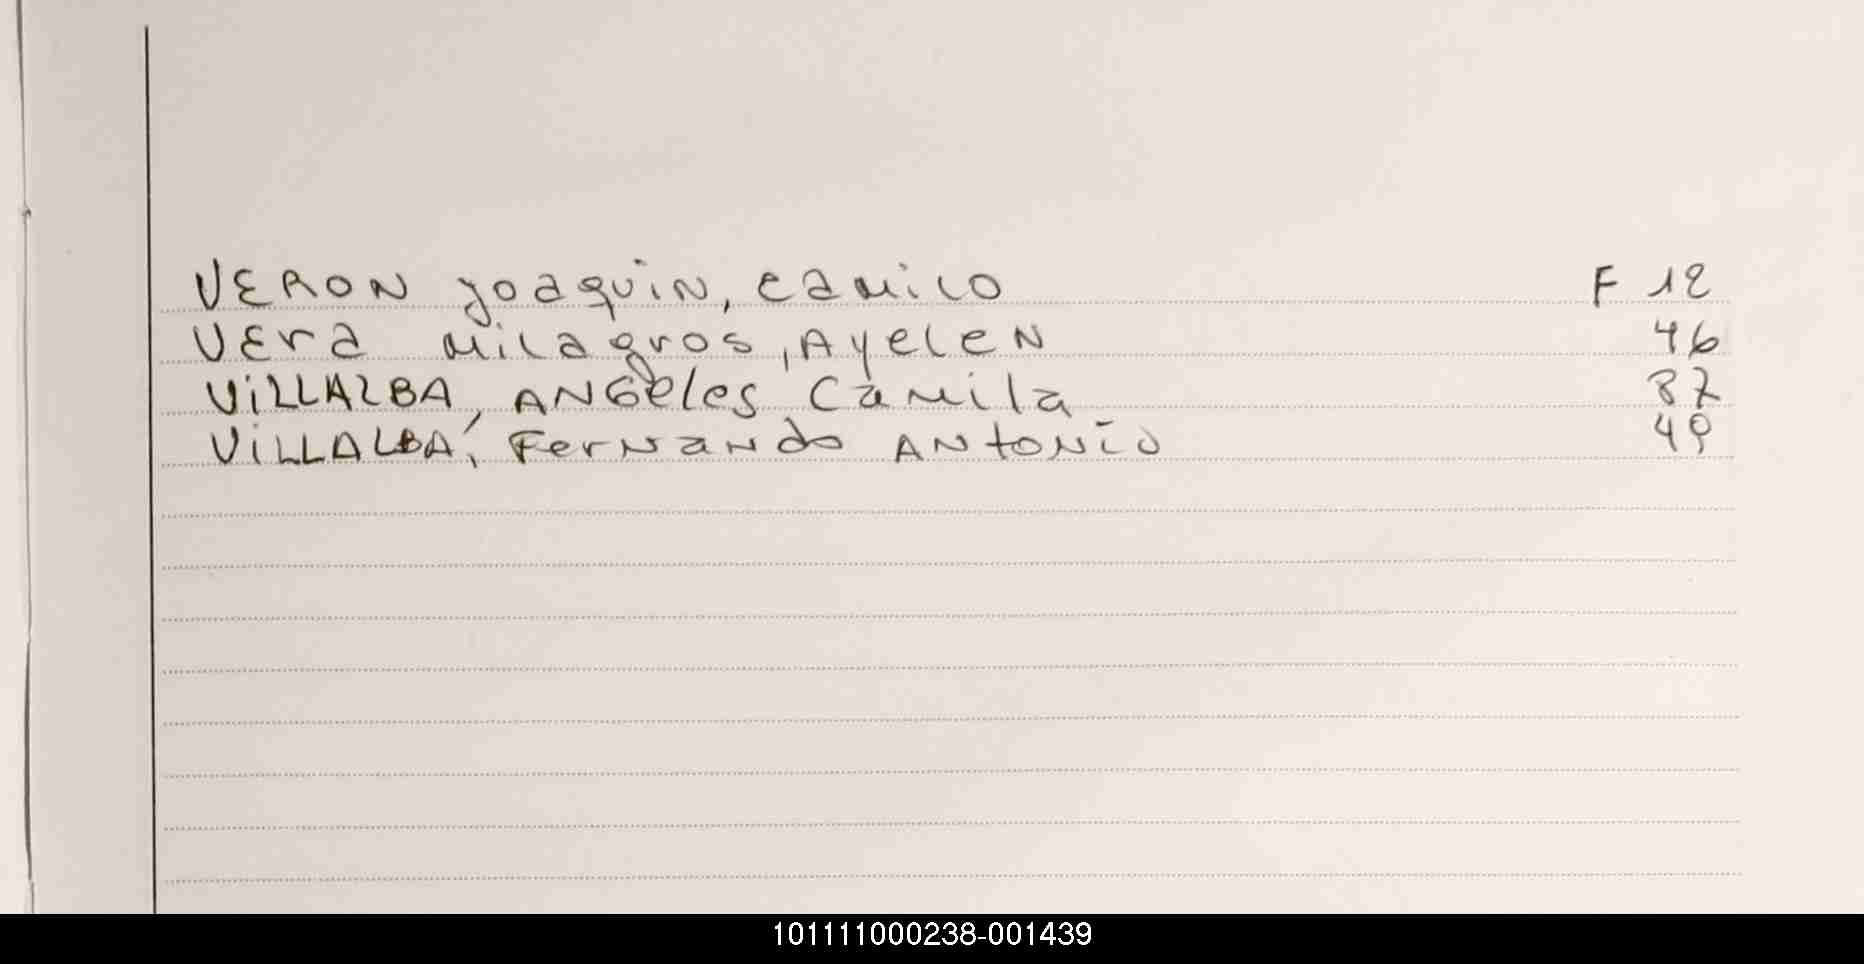 VERON Joaquin, Camilo F 12
VEra Milagros, Ayelen 46
ViLLALBA, ANGeles Camila 87
ViLLALBA, FerNando ANtoNio 49
101111000238-001439